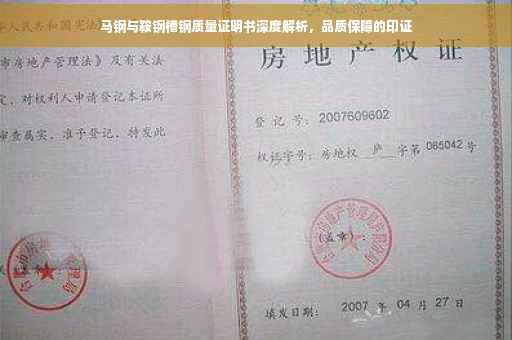 马钢与鞍钢槽钢质量证明书深度解析，品质保障的印证
人民共和国宪法
市房地产管理法》及有关
定，对权利人申请登记本证所
审查属实，准予登记，特发此
房地产权证
登 记 号：2007609602
权证字号：房地权 庐 字第 085042 号
(盖章)：
填发日期： 2007 年 04 月 27 日